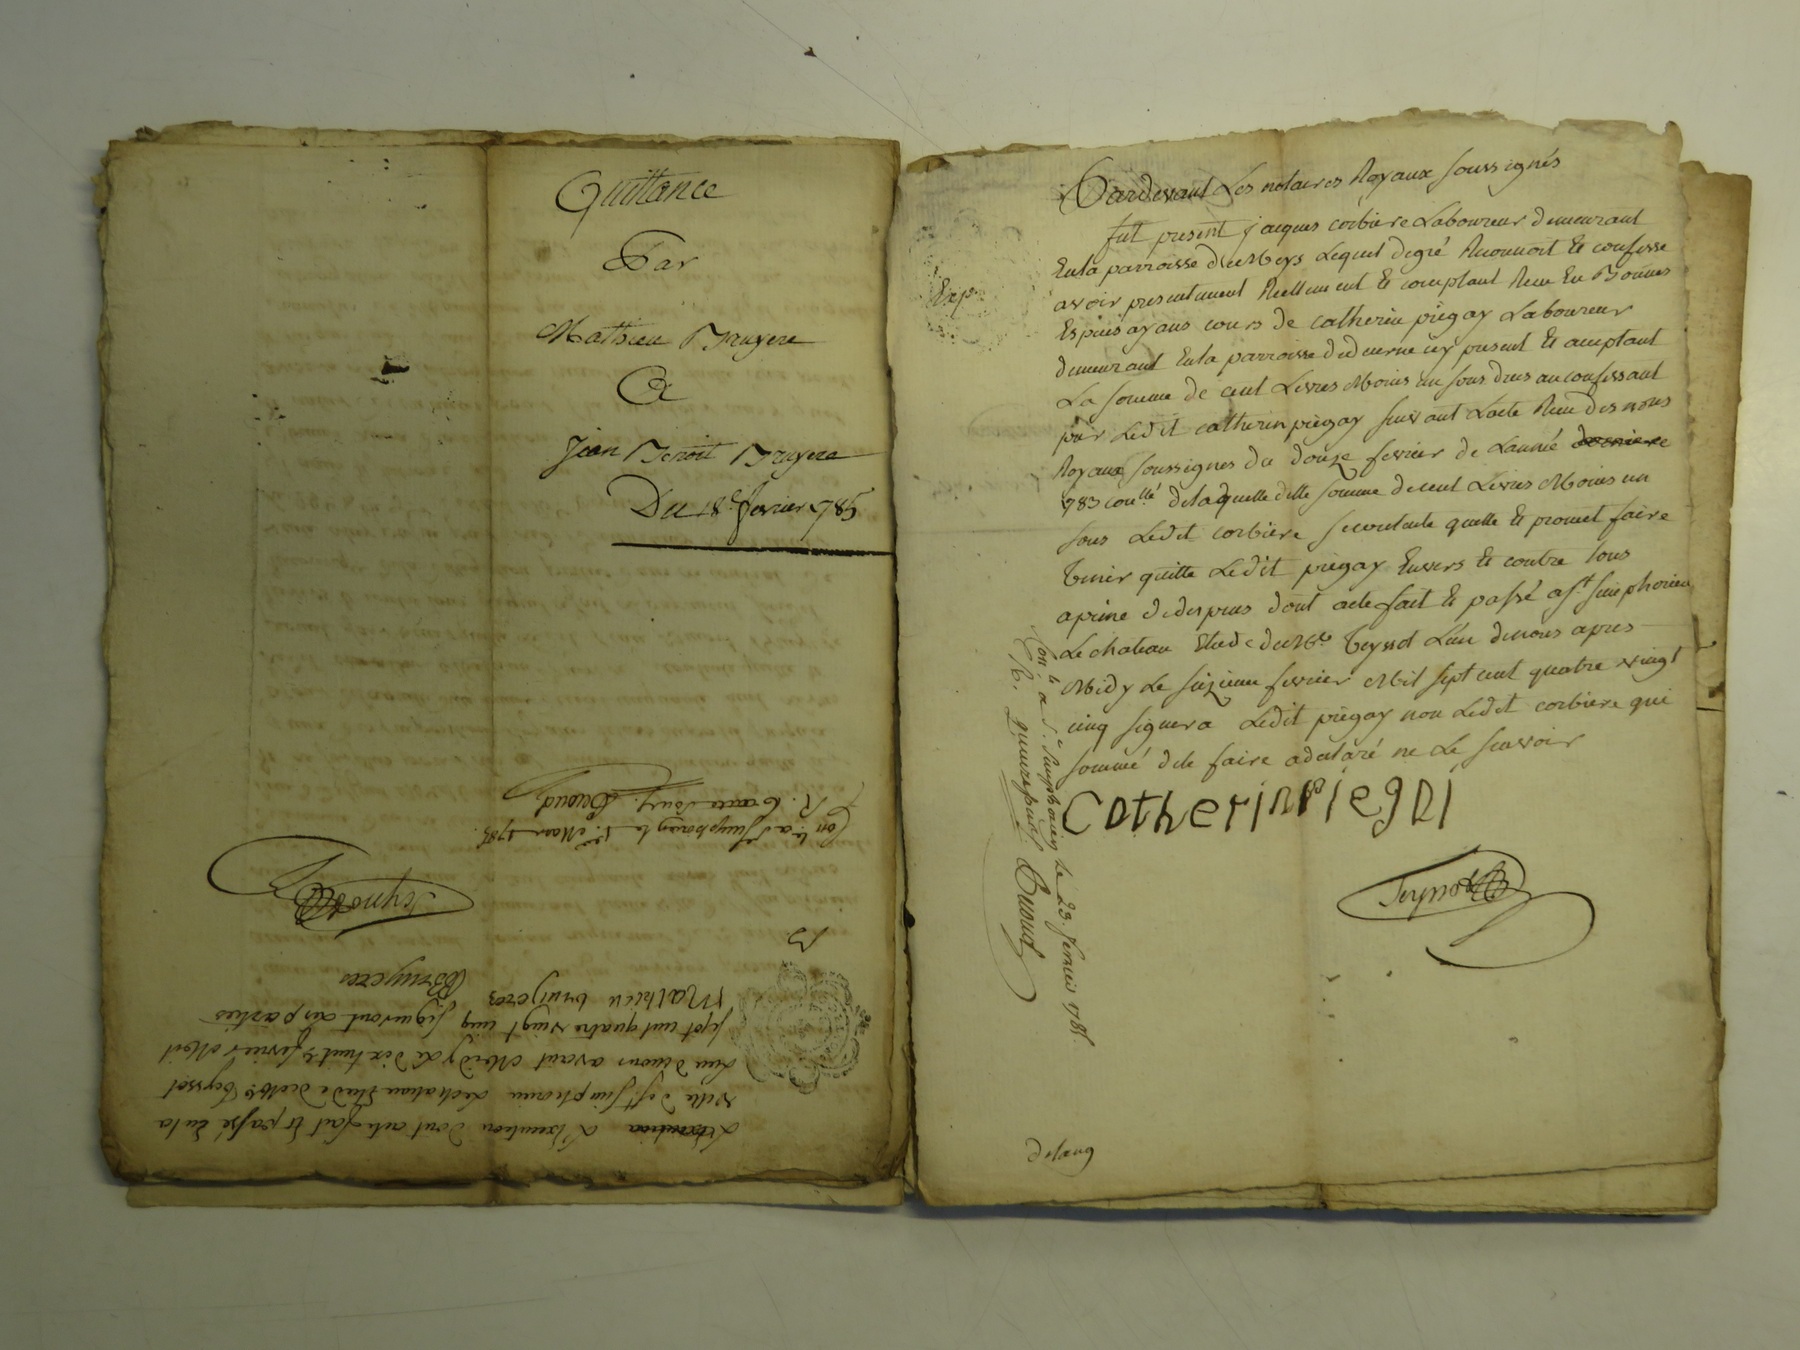 Quittance
Par
Mathieu Bruyere
A
Jean Benoit Bruyere
Du 18e fevrier 1785
L'execution dont acte fait et passé en la
ville de st simphorien Lechateau Etude de Me Teyssot
Lun de nous avant Midy Le dix huit fevrier Mil
sept cent quatre vingt cinq signeront les parties
Mathieu bruyeres
Bruyeres
Teynot
Con.lé a st simphorien le 1er Mars 1785.
R.
Pardevant Les notaires Royaux soussignés
Exp.
fut present jacques corbiere Laboureur demeurant
En la parroisse de Meys Lequel de gré Reconnoit Et confesse
avoir presentement Reellement Et comptant Reçu En Bonnes
Especes ayans cours de catherin piegay Laboureur
demeurant En la parroisse de icy present Et acceptant
La somme de cent Livres Moins un sous dues au confessant
par Ledit catherin piegay suivant L'acte Reçu des nous
Royaux soussignes du douze fevrier de L'année derniere
1783 con.llé de laquelle ditte somme de cent Livres Moins un
sous Ledit corbiere se contente quitte Et promet faire
Tenir quitte Ledit piegay Envers Et contre tous
a peine de depens dont acte fait Et passé a st simphorien
Le chateau Etude de Me Teyssot L'un de nous apres
Midy Le seizieme fevrier Mil sept cent quatre vingt
cinq signera Ledit piegay non Ledit corbiere qui
sommé de le faire a declaré ne Le scavoir
CatherinPiegai
Teynot
Con.lé a st simphorien le 23. fevrier 1785.
R. quinze sous